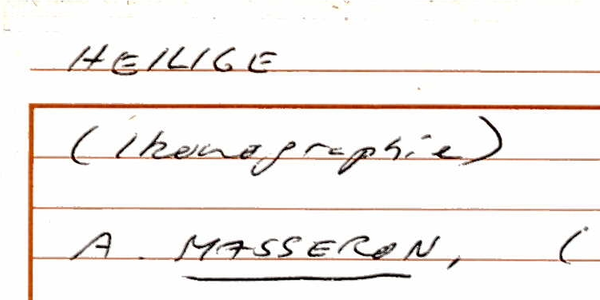 HEILIGE
(Ikonographie)
A. MASSERON, (